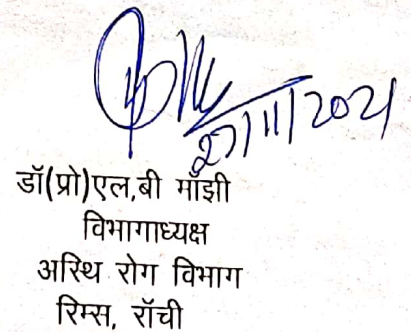 27/11/2021
डॉ(प्रो)एल,बी माँझी
विभागाध्यक्ष
अस्थि रोग विभाग
रिम्स, राँची